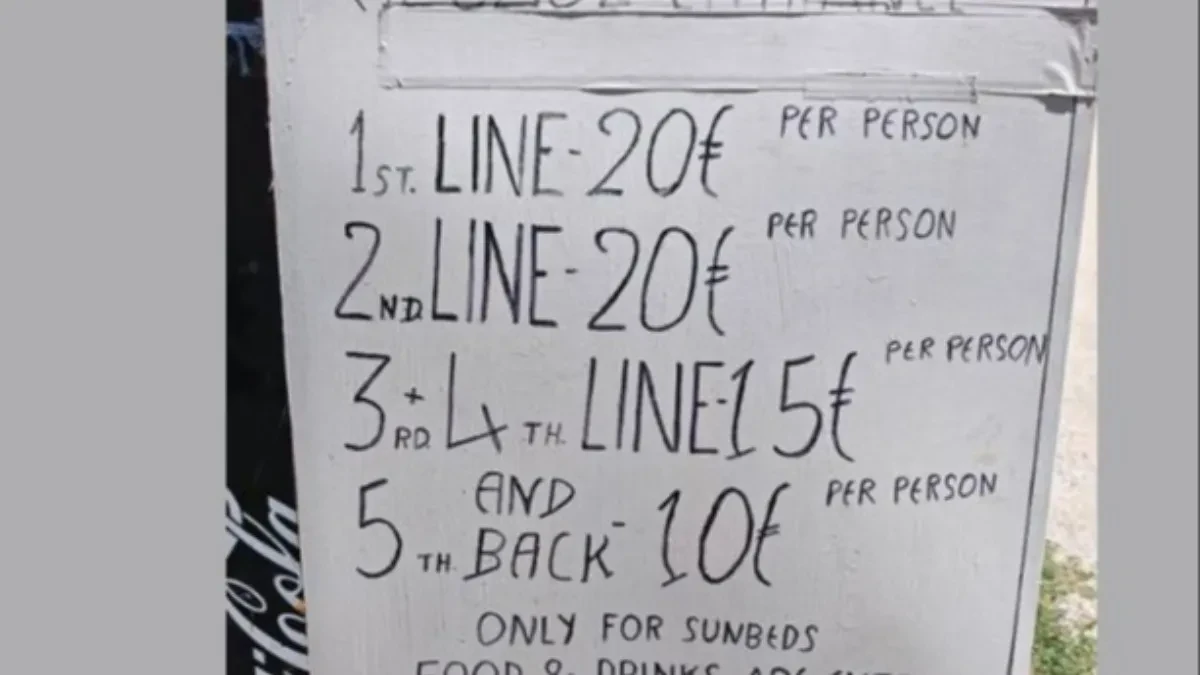 1ST. LINE - 20€ PER PERSON
2ND. LINE - 20€ PER PERSON
3RD. + 4TH. LINE - 15€ PER PERSON
5TH. AND BACK - 10€ PER PERSON
ONLY FOR SUNBEDS
FOOD & DRINKS ARE
Coca-Cola